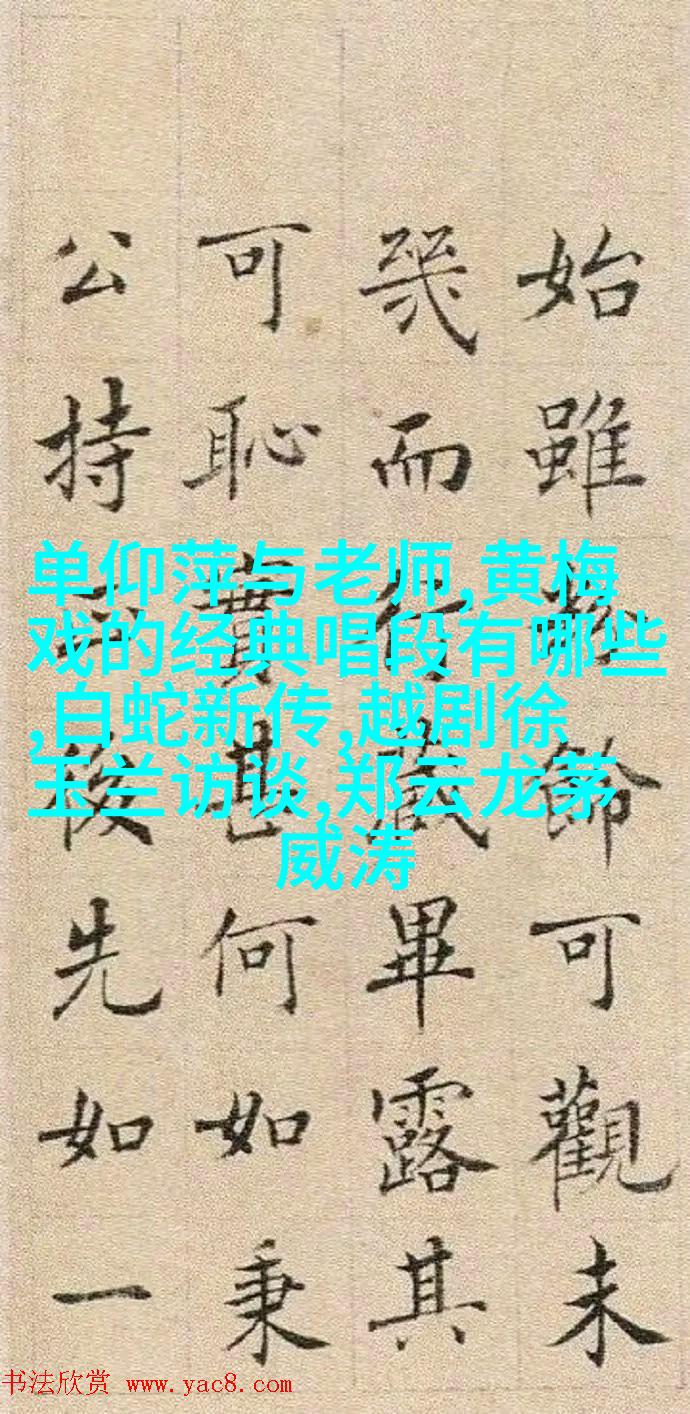 始雖飾可觀未
幾而行藏畢露其
可恥實甚何如秉
公持後先如一
单仰萍与老师,黄梅
戏的经典唱段有哪些
,白蛇新传,越剧徐
玉兰访谈,郑云龙茅
威涛
书法欣赏 www.yac8.com